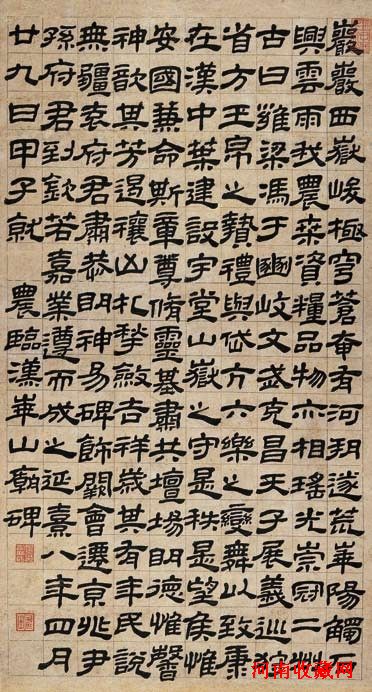 巖巖西嶽峻極穹蒼奄有河朔遂荒華陽觸石
興雲雨我農桒資糧品物亦相瑤光崇冠二州
古曰雍梁馮于豳岐文武克昌天子展義巡狩
省方玉帛之贄禮與岱亢六樂之變舞以致康
在漢中葉建設宇堂山嶽之守是秩是望侯惟
安國兼命斯章尊脩靈基肅共壇場明德惟馨
神歆其芳遏禳凶札揫斂吉祥歲其有年民說
無疆袁府君肅恭明神易碑飾闕會遷京兆尹
孫府君到欽若嘉業遵而成之延熹八年四月
廿九日甲子就 農臨漢華山廟碑
河南收藏网